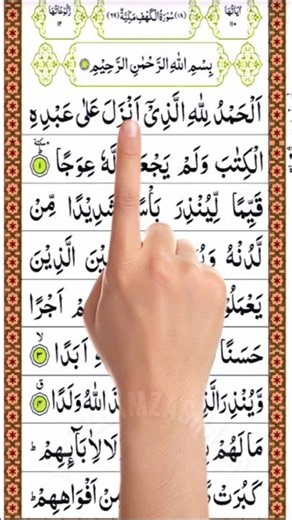 اٰیَاتُهَا ١١٠ (١٨) سُوْرَةُ الْكَهْفِ مَكِّيَّةٌ (٦٩) رُكُوْعَاتُهَا ١٢
بِسْمِ اللهِ الرَّحْمٰنِ الرَّحِيْمِ
اَلْحَمْدُ لِلّٰهِ الَّذِيْۤ اَنْزَلَ عَلٰى عَبْدِهِ
الْكِتٰبَ وَلَمْ يَجْعَ لَّهٗ عِوَجًا ١
قَيِّمًا لِّيُنْذِرَ بَاْسً شَدِيْدًا مِّنْ
لَّدُنْهُ الَّذِيْنَ
يَعْمَلُوْ اَجْرًا
حَسَنًا اَبَدًا ٣
وَّيُنْذِرَ اللّٰهُ وَلَدًا ٤
مَا لَهُمْ لَا لِاٰبَآئِهِمْ ؕ
كَبُرَتْ مِنْ اَفْوَاهِهِمْ ؕ